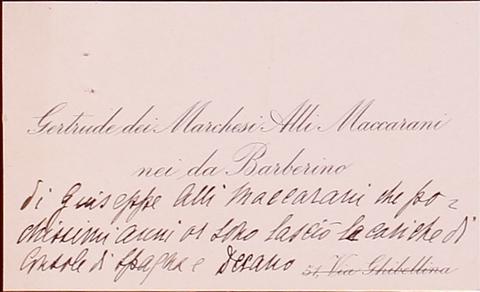 Gertrude dei Marchesi Alli Maccarani
nei da Barberino
di Giuseppe Alli Maccarani che po=
chissimi anni or sono lasciò le cariche di
Console di Spagna e Decano 51, Via Ghibellina